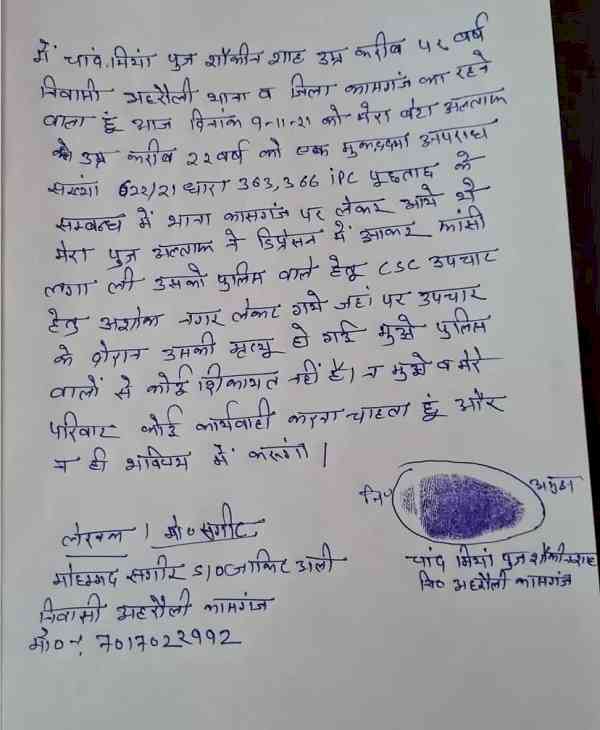 में चांद मियां पुत्र शौकीन शाह उम्र करीब ५२ वर्ष
निवासी अहरौली थाना व जिला कासगंज का रहने
वाला हूं आज दिनांक 9-11-21 को मेरा बेटा अल्ताफ
को उम्र करीब २२ वर्ष को एक मुकद्दमा अपराध
संख्या 622/21 धारा 363,366 iPC पूछताछ के
सम्बन्ध में थाना कासगंज पर लेकर आये थे
मेरा पुत्र अल्ताफ ने डिप्रेसन में आकर फांसी
लगा ली उसको पुलिस वाले हेतू CSC उपचार
हेतु अशोक नगर लेकर गये जहां पर उपचार
के दौरान उसकी मृत्यू हो गई मुझे पुलिस
वालों से कोई शिकायत नहीं है। न मुझे व मेरे
परिवार कोई कार्यवाही करना चाहता हूं और
न ही भविष्य में करूंगा।
नि० अंगूठा
लेखक / मो० सगीर
चांद मियां पुत्र शौकीन शाह
मोहम्मद सगीर S/O जाकिर अली
नि० अहरौली कासगंज
निवासी अहरौली कासगंज
मो० नं० 7017022992